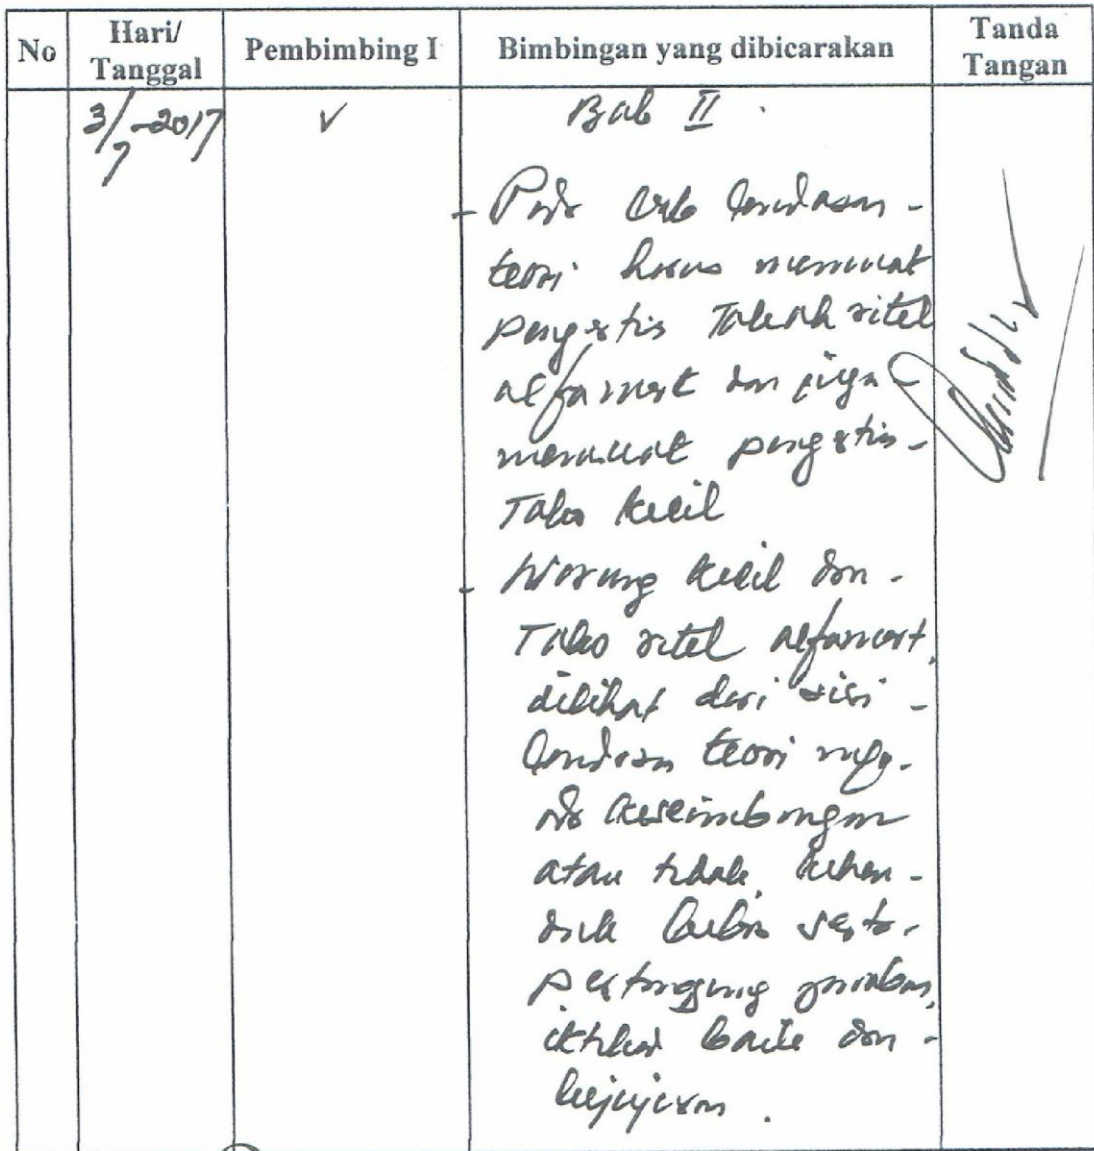 No
Hari/
Tanggal
Pembimbing I
Bimbingan yang dibicarakan
Tanda
Tangan
3/7-2017
✓
Bab II.
- Pada bab landasan -
teori harus memuat
pengertian Tokoh ritel
alfamart dan juga -
memuat pengertian -
Toko kecil
- Warung kecil dan -
Toko ritel alfamart,
dilihat dari sisi -
landasan teori
keseimbangan
atau tidak, kehen-
dak bebas serta -
pertanggung jawaban,
iktikad baik dan -
kejujuran.